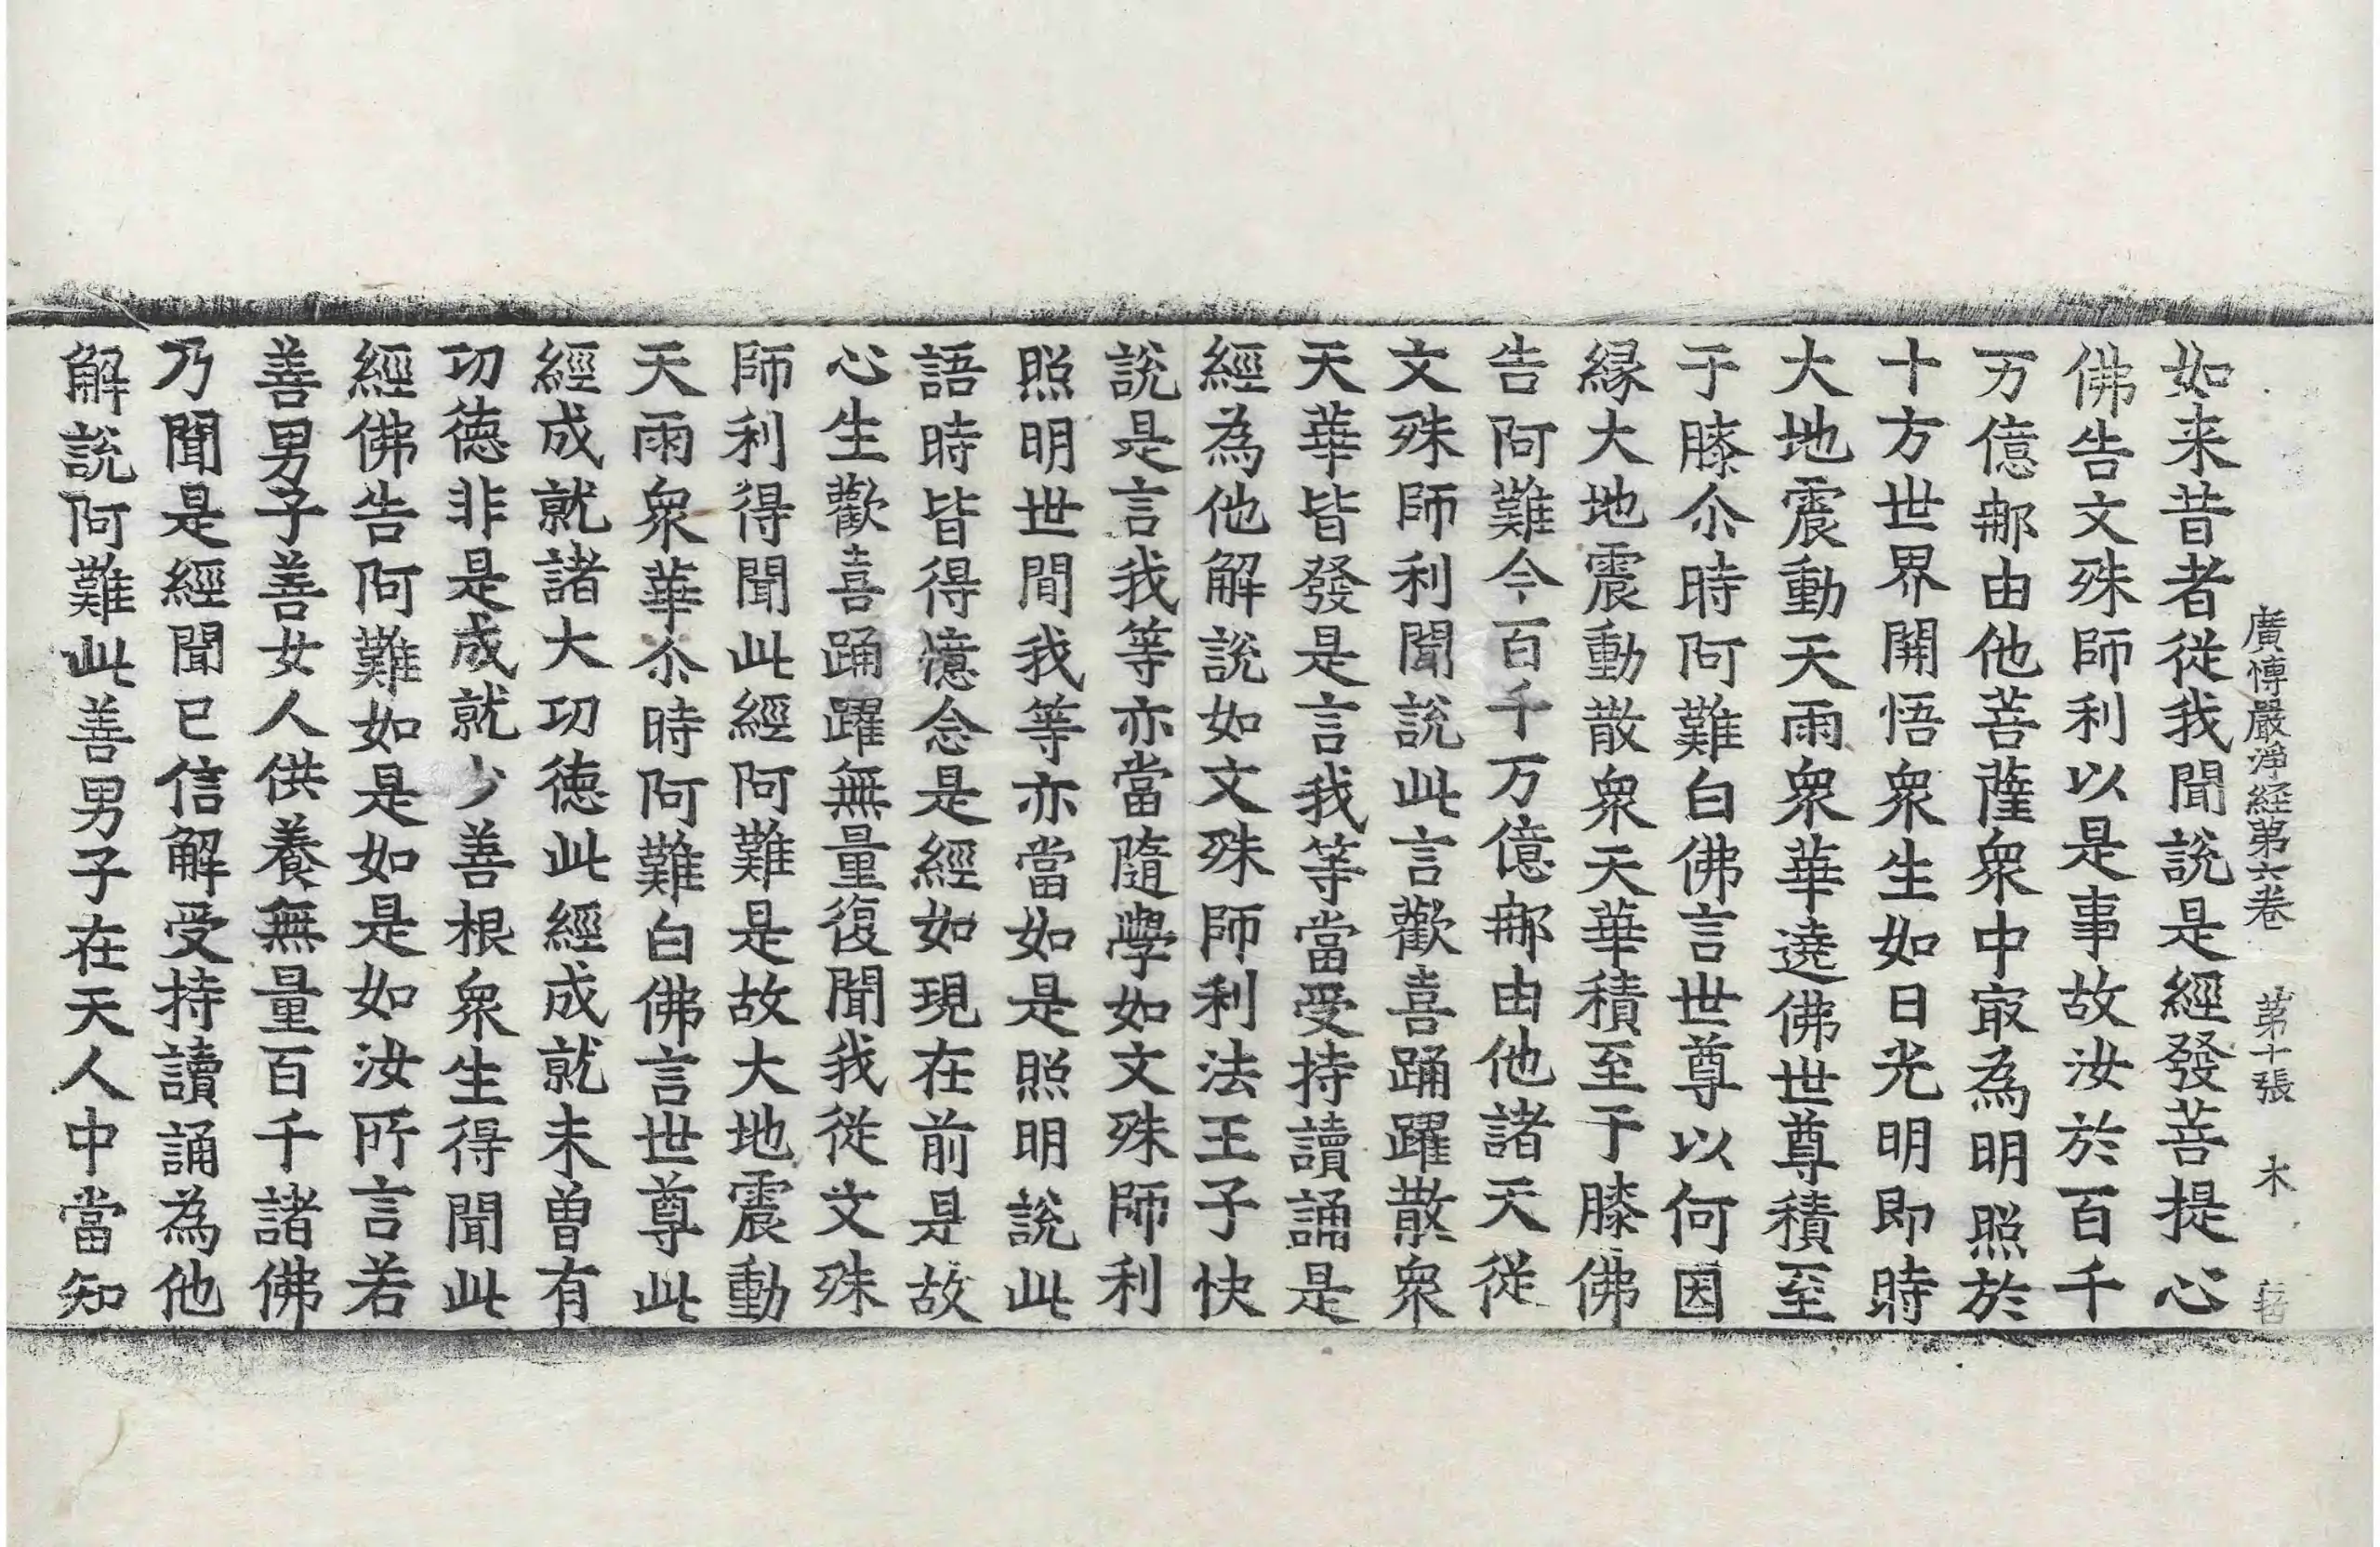 廣博嚴淨経第六卷 第十張 木
如来昔者從我聞說是經發菩提心
佛告文殊師利以是事故汝於百千
万億那由他菩薩衆中㝡為明照於
十方世界開悟衆生如日光明即時
大地震動天雨衆華遶佛世尊積至
于膝尒時阿難白佛言世尊以何因
縁大地震動散衆天華積至于膝佛
告阿難今百千万億那由他諸天從
文殊師利聞說此言歡喜踊躍散衆
天華皆發是言我等當受持讀誦是
經為他解說如文殊師利法王子快
說是言我等亦當隨學如文殊師利
照明世間我等亦當如是照明說此
語時皆得憶念是經如現在前是故
心生歡喜踊躍無量復聞我從文殊
師利得聞此經阿難是故大地震動
天雨衆華尒時阿難白佛言世尊此
經成就諸大功徳此經成就未曾有
功徳非是成就少善根衆生得聞此
經佛告阿難如是如是如汝所言若
善男子善女人供養無量百千諸佛
乃聞是經聞已信解受持讀誦為他
解說阿難此善男子在天人中當知